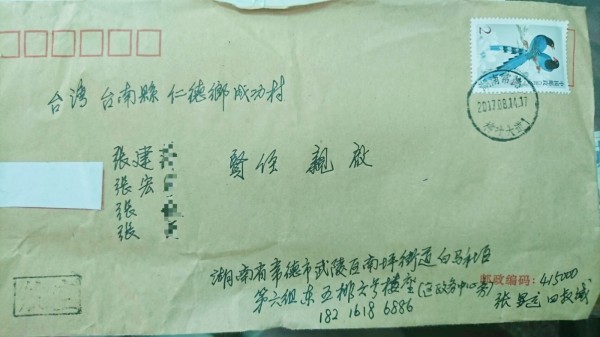 2
台湾 台南縣 仁德鄉 成功村
張建
張宏
張
張
賢侄 親啟
2017.08.14.17
湖南省常德市武陵区南坪街道白马社区
第六组东五栋六号楼座(区政务中心旁)
邮政编码: 415000
182 1618 6886
张